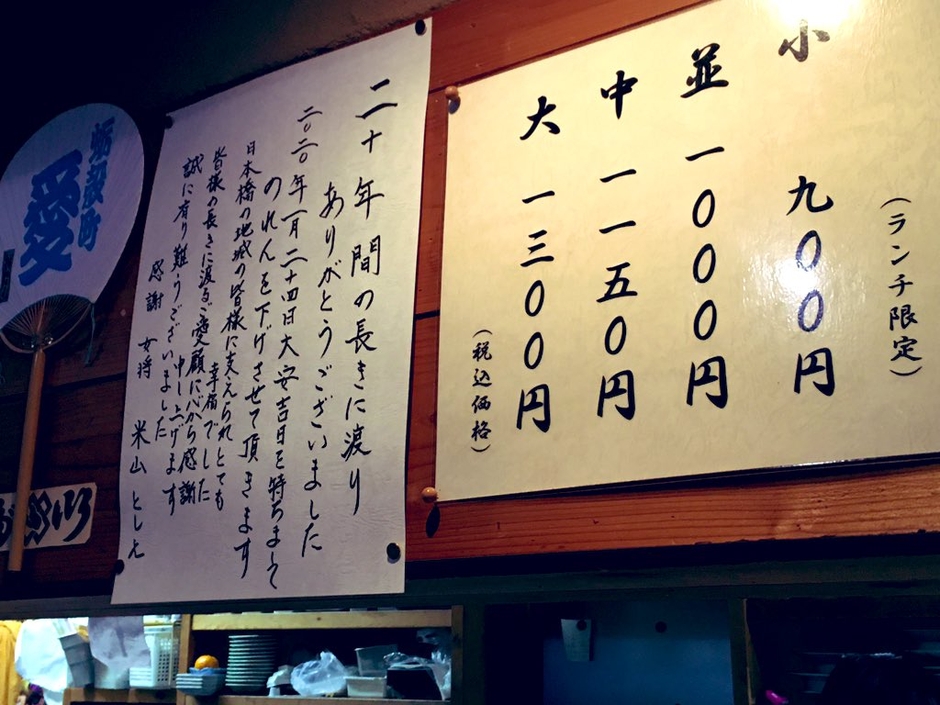 （ランチ限定）
小 九〇〇円
並 一〇〇〇円
中 一一五〇円
大 一三〇〇円
（税込価格）
二十年間の長きに渡り
ありがとうございました
二〇二〇年一月二十四日大安吉日を持ちまして
のれんを下げさせて頂きます
日本橋の地域の皆様に支えられとても
幸福でした
皆様の長きに渡るご愛顧に心から感謝
申し上げます
誠に有り難うございました
感謝 女将 米山 としえ
蛎殻町
愛